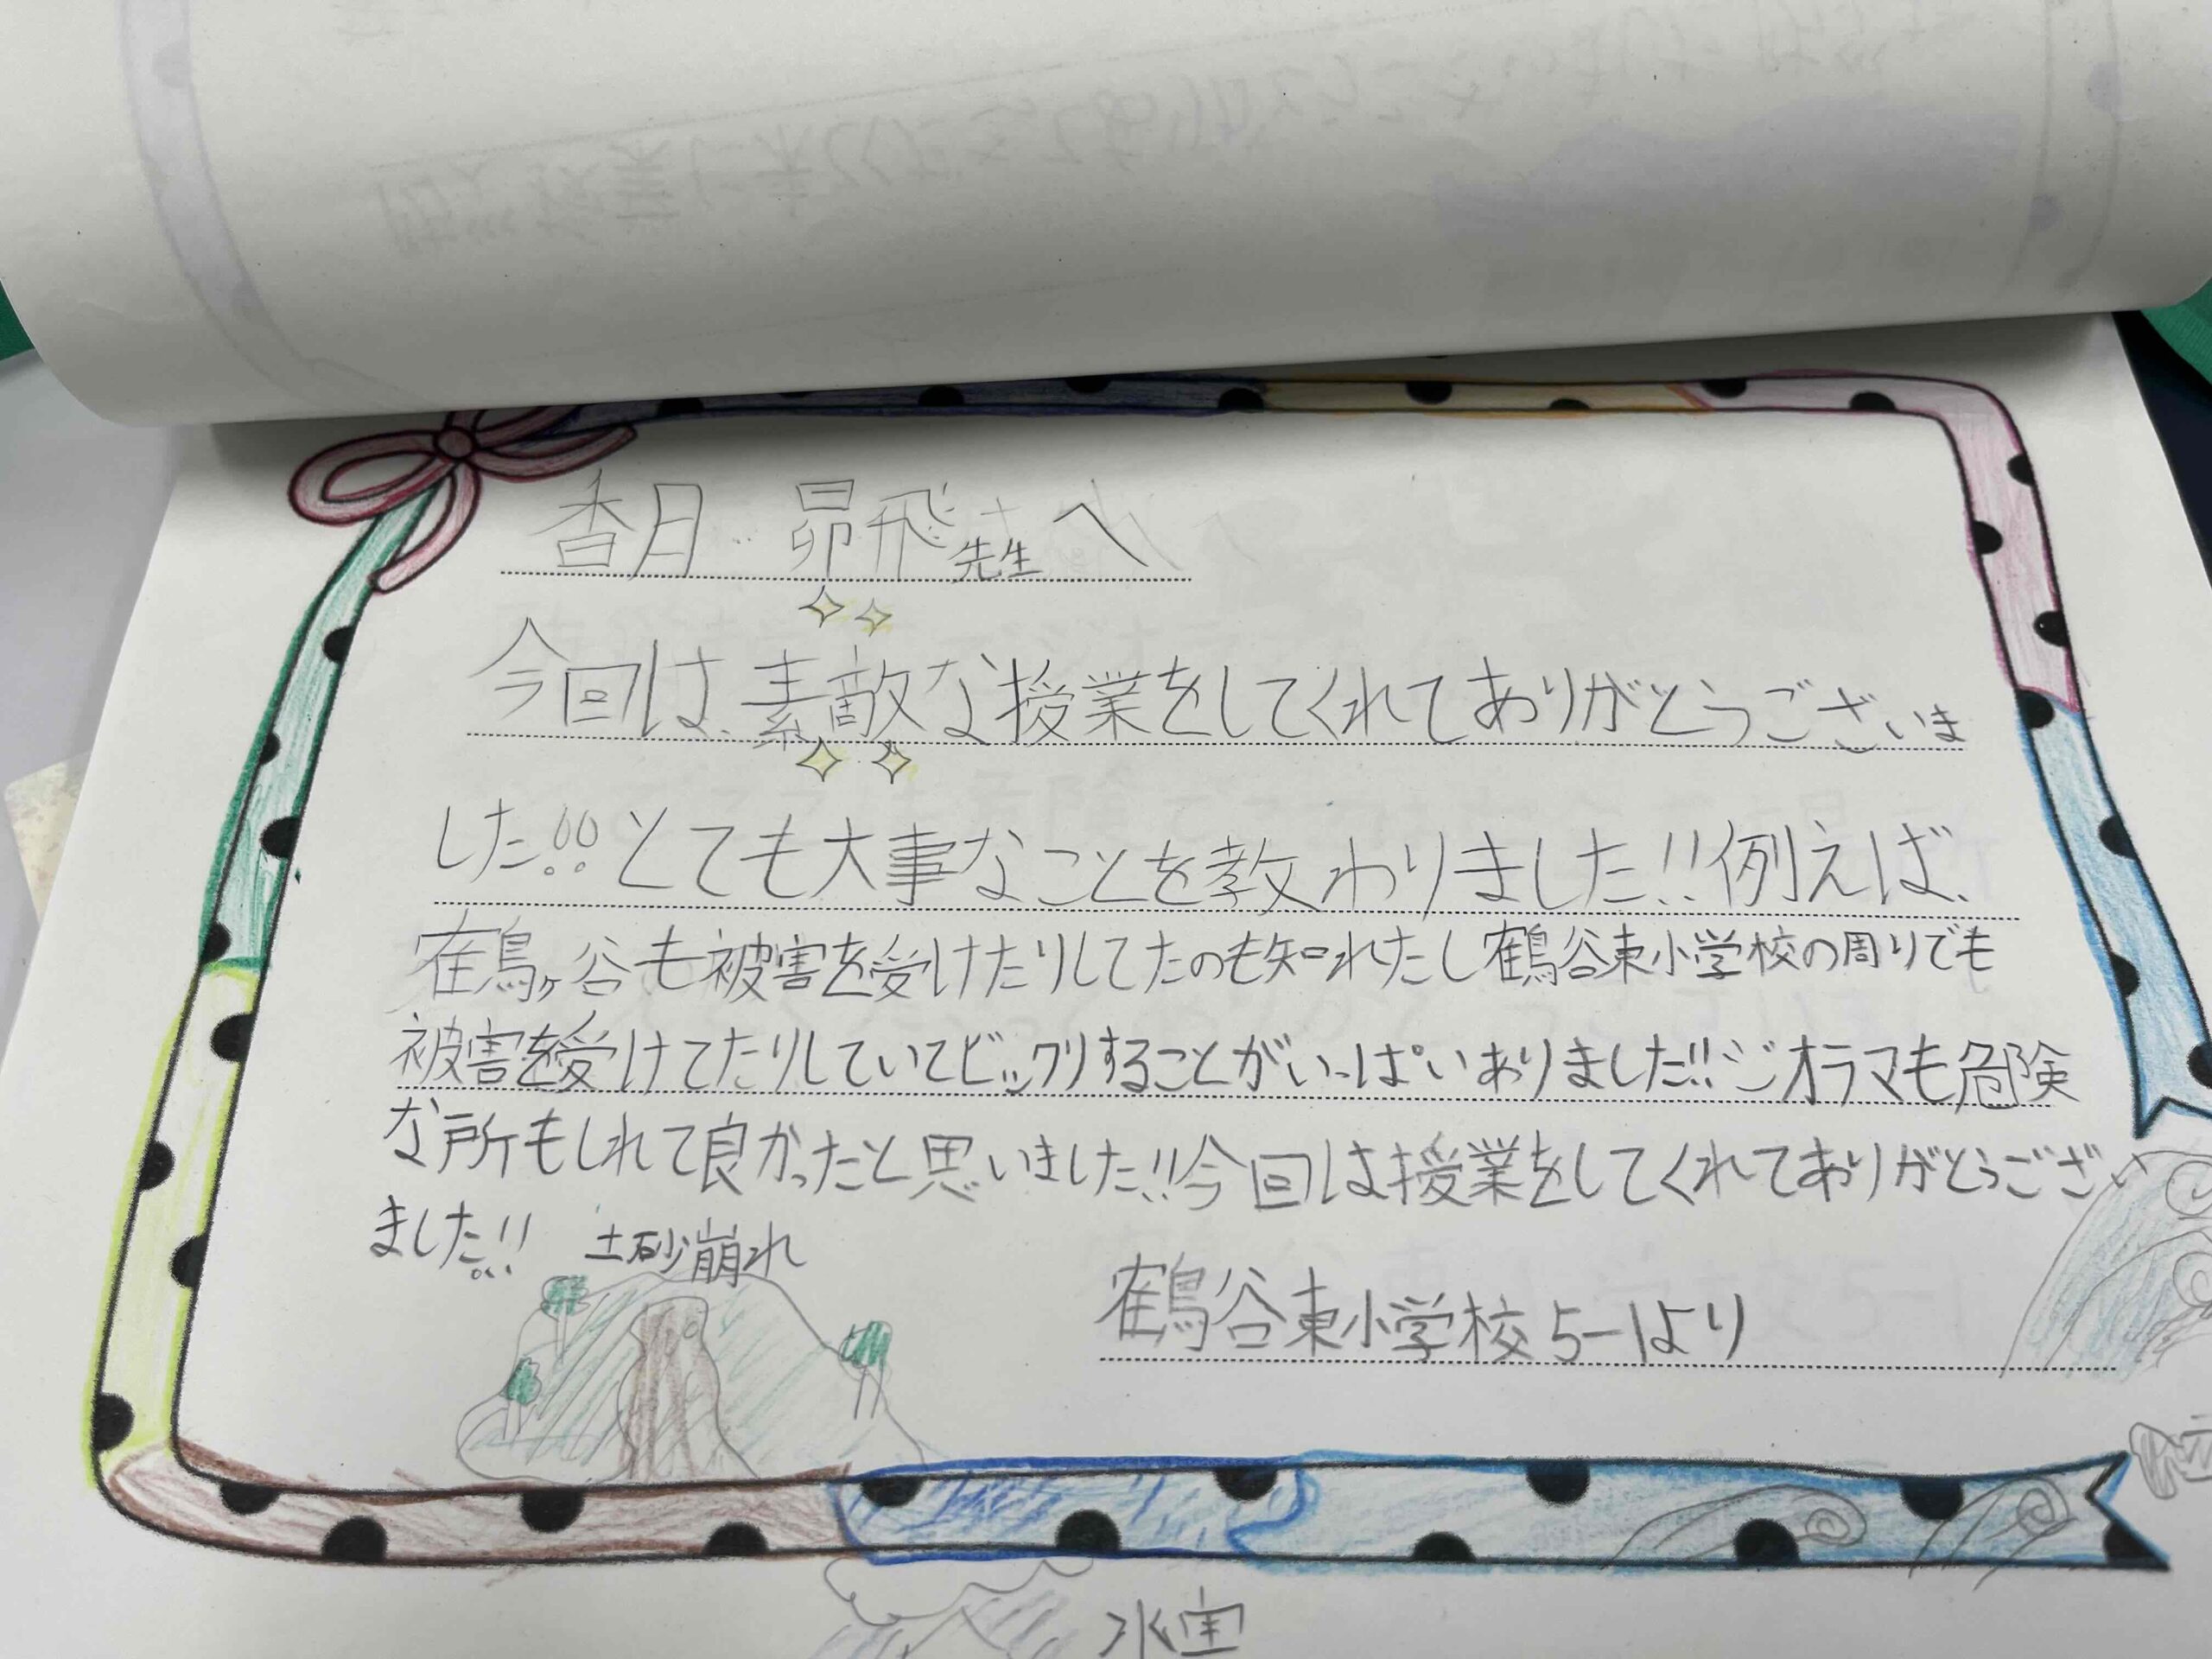 香月 昴飛先生へ
今回は、素敵な授業をしてくれてありがとうございま
した!!とても大事なことを教わりました!!例えば、
鶴ヶ谷も被害を受けたりしてたのも知れたし鶴谷東小学校の周りでも
被害を受けてたりしていてビックリすることがいっぱいありました!!ジオラマも危険
な所もしれて良かったと思いました!!今回は授業をしてくれてありがとうござい
ました!!
土砂崩れ
鶴谷東小学校5-1より
水害